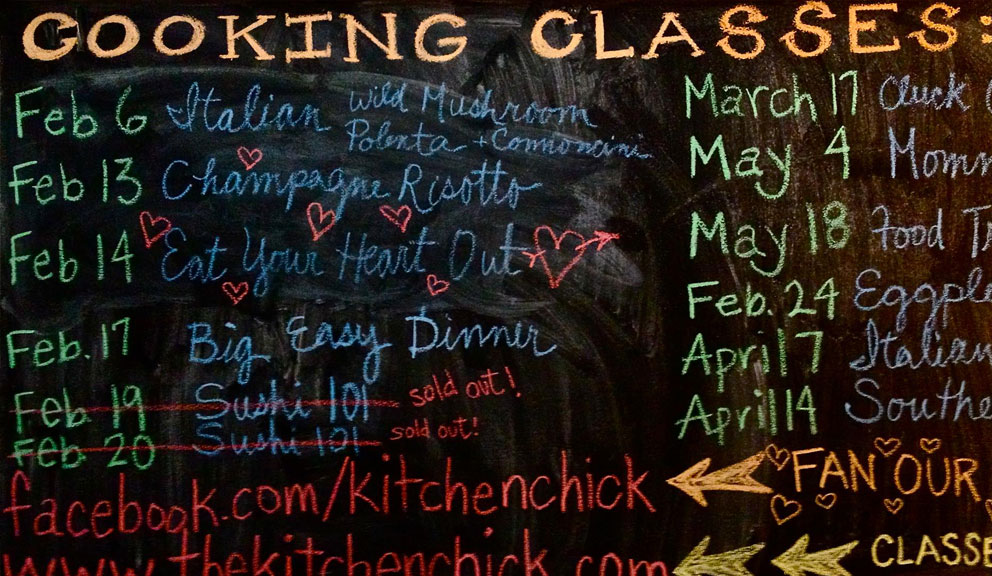 COOKING CLASSES:
Feb 6 Italian Wild Mushroom
Polenta +
Feb 13 Champagne Risotto
Feb 14 Eat Your Heart Out
Feb. 17 Big Easy Dinner
Feb 19 Sushi 101 sold out!
Feb 20 Sushi 101 sold out!
facebook.com/kitchenchick
www.thekitchenchick.com
March 17 Cluck
May 4 Mom
May 18 Food T
Feb. 24 Eggpl
April 7 Italian
April 14 Southe
FAN OUR
CLASSE